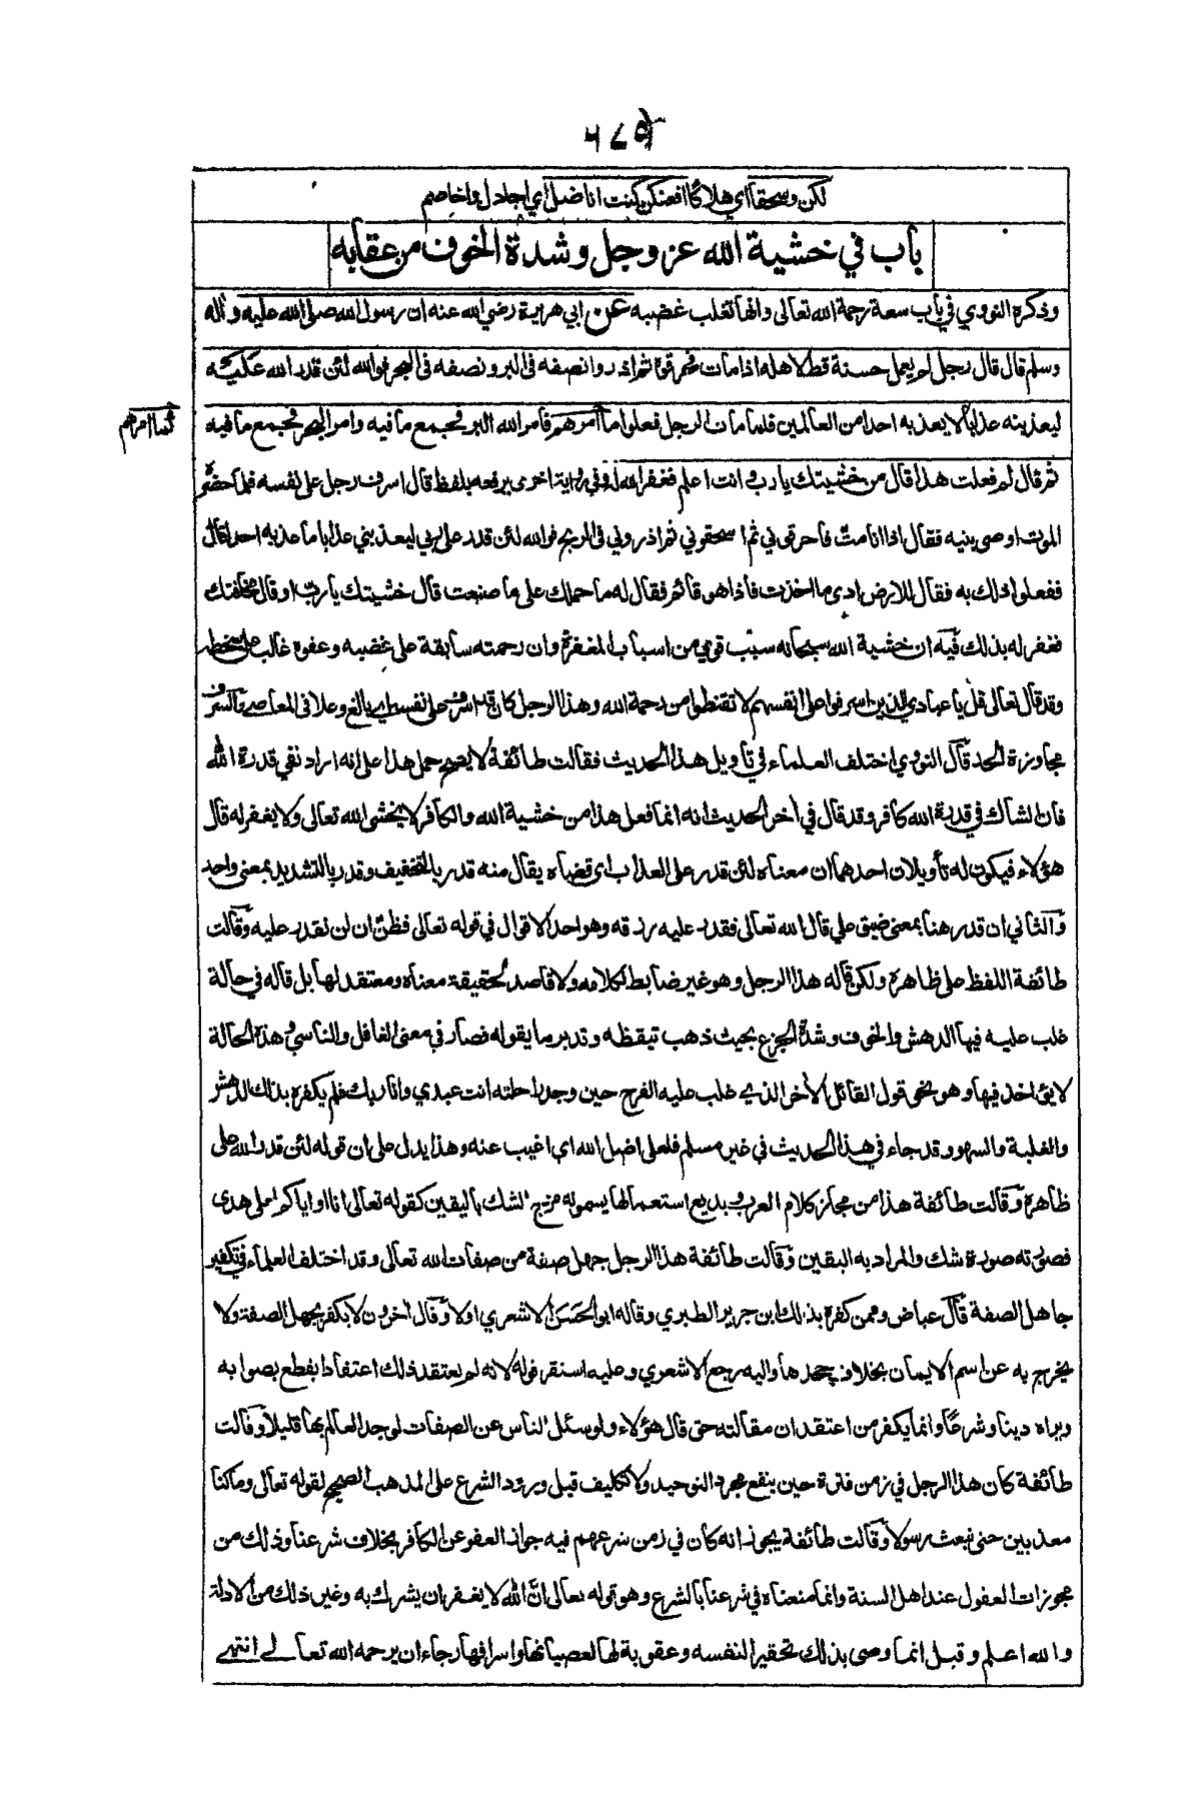 لكن وسحقا اي هلاكا فعنكن كنت اناضل اي اجادل واخاصم
باب في خشية الله عز وجل وشدة الخوف من عقابه
وذكره النووي في باب سعة رحمة الله تعالى وانها تغلب غضبه عن ابي هريرة رضي الله عنه ان رسول الله صلى الله عليه وآله
وسلم قال قال رجل لم يعمل حسنة قط لاهله اذا مات فحرقوه ثم اذروا نصفه في البر ونصفه في البحر فوالله لئن قدر الله عليه
ليعذبنه عذابا لا يعذبه احدا من العالمين فلما مات الرجل فعلوا ما أمرهم فأمر الله البر فجمع ما فيه وامر البحر فجمع ما فيه
ثم قال لم فعلت هذا قال من خشيتك يا رب وانت اعلم فغفر الله له وفي رواية اخرى يرفعه بلفظ قال اسرف رجل على نفسه فلما حضره
الموت اوصى بنيه فقال اذا انا مت فأحرقوني ثم اسحقوني ثم اذروني في الريح فوالله لئن قدر علي ربي ليعذبني عذابا ما عذبه احدا قال
ففعلوا ذلك به فقال للارض ادي ما اخذت فاذا هو قائم فقال له ما حملك على ما صنعت قال خشيتك يا رب او قال مخافتك
فغفر له بذلك فيه ان خشية الله سبحانه سبب قوي من اسباب المغفرة وان رحمته سابقة على غضبه وعفوه غالب على سخطه
وقد قال تعالى قل يا عبادي الذين اسرفوا على انفسهم لا تقنطوا من رحمة الله وهذا الرجل كان قد اسرف على نفسه اي بالغ وعلا في المعاصي والسرف
مجاوزة الحد قال النووي اختلف العلماء في تأويل هذا الحديث فقالت طائفة لا يصح حمل هذا على انه اراد نفي قدرة الله
فان الشاك في قدرة الله كافر وقد قال في اخر الحديث انه انما فعل هذا من خشية الله والكافر لا يخشى الله تعالى ولا يغفر له قال
هؤلاء فيكون له تأويلان احدهما ان معناه لئن قدر على العذاب اي قضاه يقال منه قدر بالتخفيف وقدر بالتشديد بمعنى واحد
والثاني ان قدر هنا بمعنى ضيق علي قال الله تعالى فقدر عليه رزقه وهو احد الاقوال في قوله تعالى فظن ان لن نقدر عليه وقالت
طائفة اللفظ على ظاهره ولكن قاله هذا الرجل وهو غير ضابط لكلامه ولا قاصد لحقيقة معناه ومعتقد لها بل قاله في حالة
غلب عليه فيها الدهش والخوف وشدة الجزع بحيث ذهب تيقظه وتدبر ما يقوله فصار في معنى الغافل والناسي وهذه الحالة
لا يؤاخذ فيها وهو نحو قول القائل الأخر الذي غلب عليه الفرح حين وجد راحلته انت عبدي وانا ربك فلم يكفره بذلك الدهش
والغلبة والسهو وقد جاء في هذا الحديث في غير مسلم فلعلي اضل الله اي اغيب عنه وهذا يدل على ان قوله لئن قدر الله على
ظاهره وقالت طائفة هذا من مجاز كلام العرب وبديع استعمالها يسمونه مزج الشك باليقين كقوله تعالى انا او اياكم لعلى هدى
فصورته صورة شك والمراد به اليقين وقالت طائفة هذا الرجل جهل صفة من صفات الله تعالى وقد اختلف العلماء في تكفير
جاهل الصفة قال عياض وممن كفره بذلك ابن جرير الطبري وقاله ابو الحسن الاشعري اولا وقال أخرون لا يكفر بجهل الصفة ولا
يخرج به عن اسم الايمان بخلاف جحدها واليه رجع الاشعري وعليه استقر قوله لانه لم يعتقد ذلك اعتقادا يقطع بصوابه
ويراه دينا وشرعا وانما يكفر من اعتقد ان مقالته حق قال هؤلاء ولو سئل الناس عن الصفات لوجد العالم بها قليلا وقالت
طائفة كان هذا الرجل في زمن فترة حين ينفع مجرد التوحيد ولا تكليف قبل ورود الشرع على المذهب الصحيح لقوله تعالى وما كنا
معذبين حتى نبعث رسولا وقالت طائفة يجوز انه كان في زمن شرعهم فيه جواز العفو عن الكافر بخلاف شرعنا وذلك من
مجوزات العقول عند اهل السنة وانما منعناه في شرعنا بالشرع وهو قوله تعالى ان الله لا يغفر ان يشرك به وغير ذلك من الادلة
والله اعلم وقيل انما وصى بذلك تحقيرا لنفسه وعقوبة لها لعصيانها واسرافها رجاء ان يرحمه الله تعالى انتهى